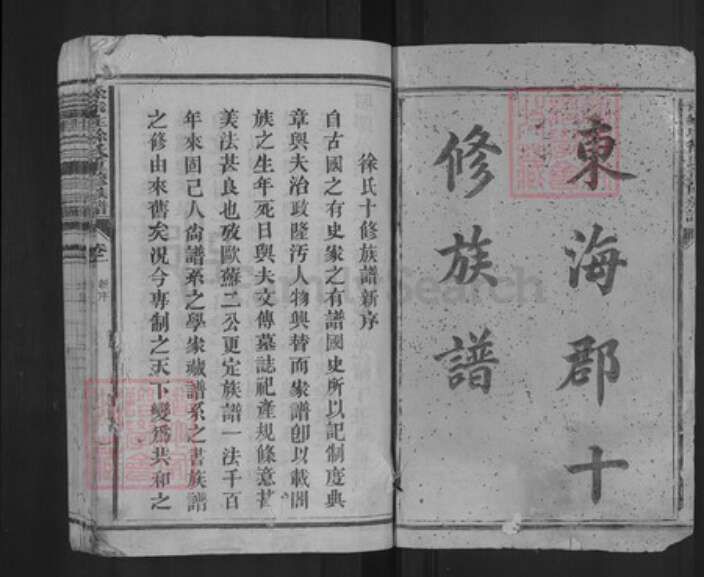 東海郡十
修族譜
徐氏十修族譜新序
自古國之有史家之有譜國史所以記制度典
章與夫治政隆汚人物興替而家譜卽以載閤
族之生年死日與夫文傳墓誌祀產規條意甚
美法甚良也攷歐蘇二公更定族譜一法千百
年來固已人尙譜系之學家藏譜系之書族譜
之修由來舊矣況今專制之天下變爲共和之
卷一